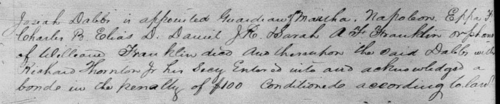 Josiah Dabbs is appointed Guardian of Martha, Napoleon, Eppa F
Charles B. Elias D. Daniel J. K. Sarah A. F. Franklin orphans
of William Franklin died And thereupon the said Dabbs with
Richard Thornton Jr his Secy Entered into and acknowledged a
bond in the penalty of $100 Conditioned according to law